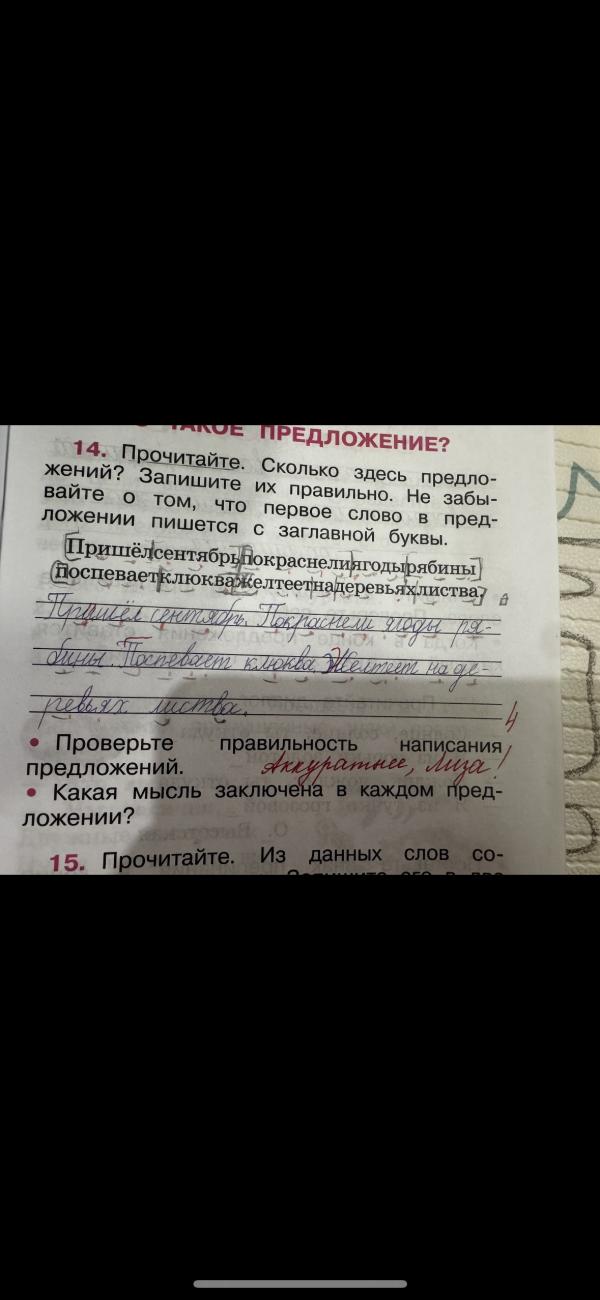 ТАКОЕ ПРЕДЛОЖЕНИЕ?
14. Прочитайте. Сколько здесь предло-
жений? Запишите их правильно. Не забы-
вайте о том, что первое слово в пред-
ложении пишется с заглавной буквы.
Пришёлсентябрьпокраснелиягодырябины
поспеваетклюкважелтеетнадеревьяхлиства.
Пришёл сентябрь. Покраснели ягоды ря-
бины. Поспевает клюква. Желтеет на де-
ревьях листва.
4
• Проверьте правильность написания
предложений. Аккуратнее, Лиза!
• Какая мысль заключена в каждом пред-
ложении?
15. Прочитайте. Из данных слов со-